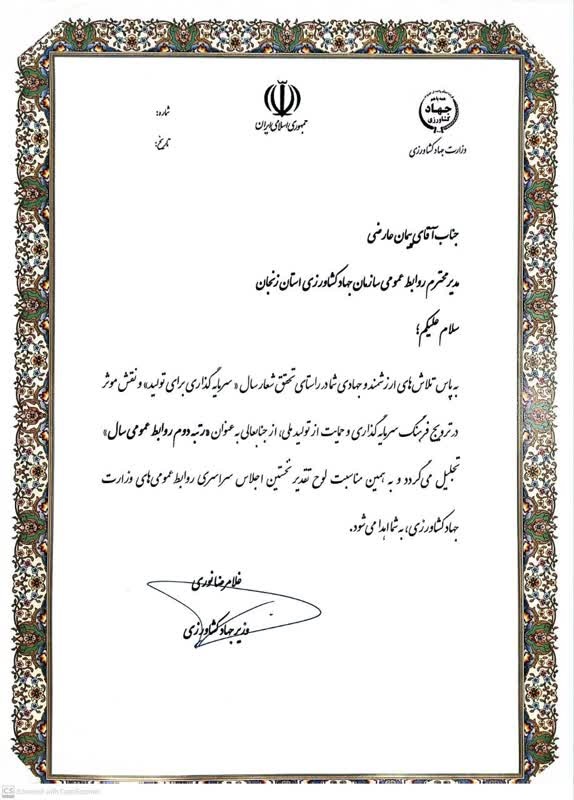 شماره:
تاریخ:
جمهوری اسلامی ایران
همه با هم
جهاد
کشاورزی
وزارت جهاد کشاورزی
جناب آقای پیمان عارضی
مدیر محترم روابط عمومی سازمان جهاد کشاورزی استان زنجان
سلام علیکم؛
به پاس تلاش های ارزشمند و جهادی شما در راستای تحقق شعار سال «سرمایه گذاری برای تولید» و نقش موثر
در ترویج فرهنگ سرمایه گذاری و حمایت از تولید ملی، از جنابعالی به عنوان «رتبه دوم روابط عمومی سال»
تجلیل می گردد و به همین مناسبت لوح تقدیر نخستین اجلاس سراسری روابط عمومی های وزارت
جهاد کشاورزی، به شما اهدا می شود.
غلامرضا نوری
وزیر جهاد کشاورزی
CS Scanned with CamScanner